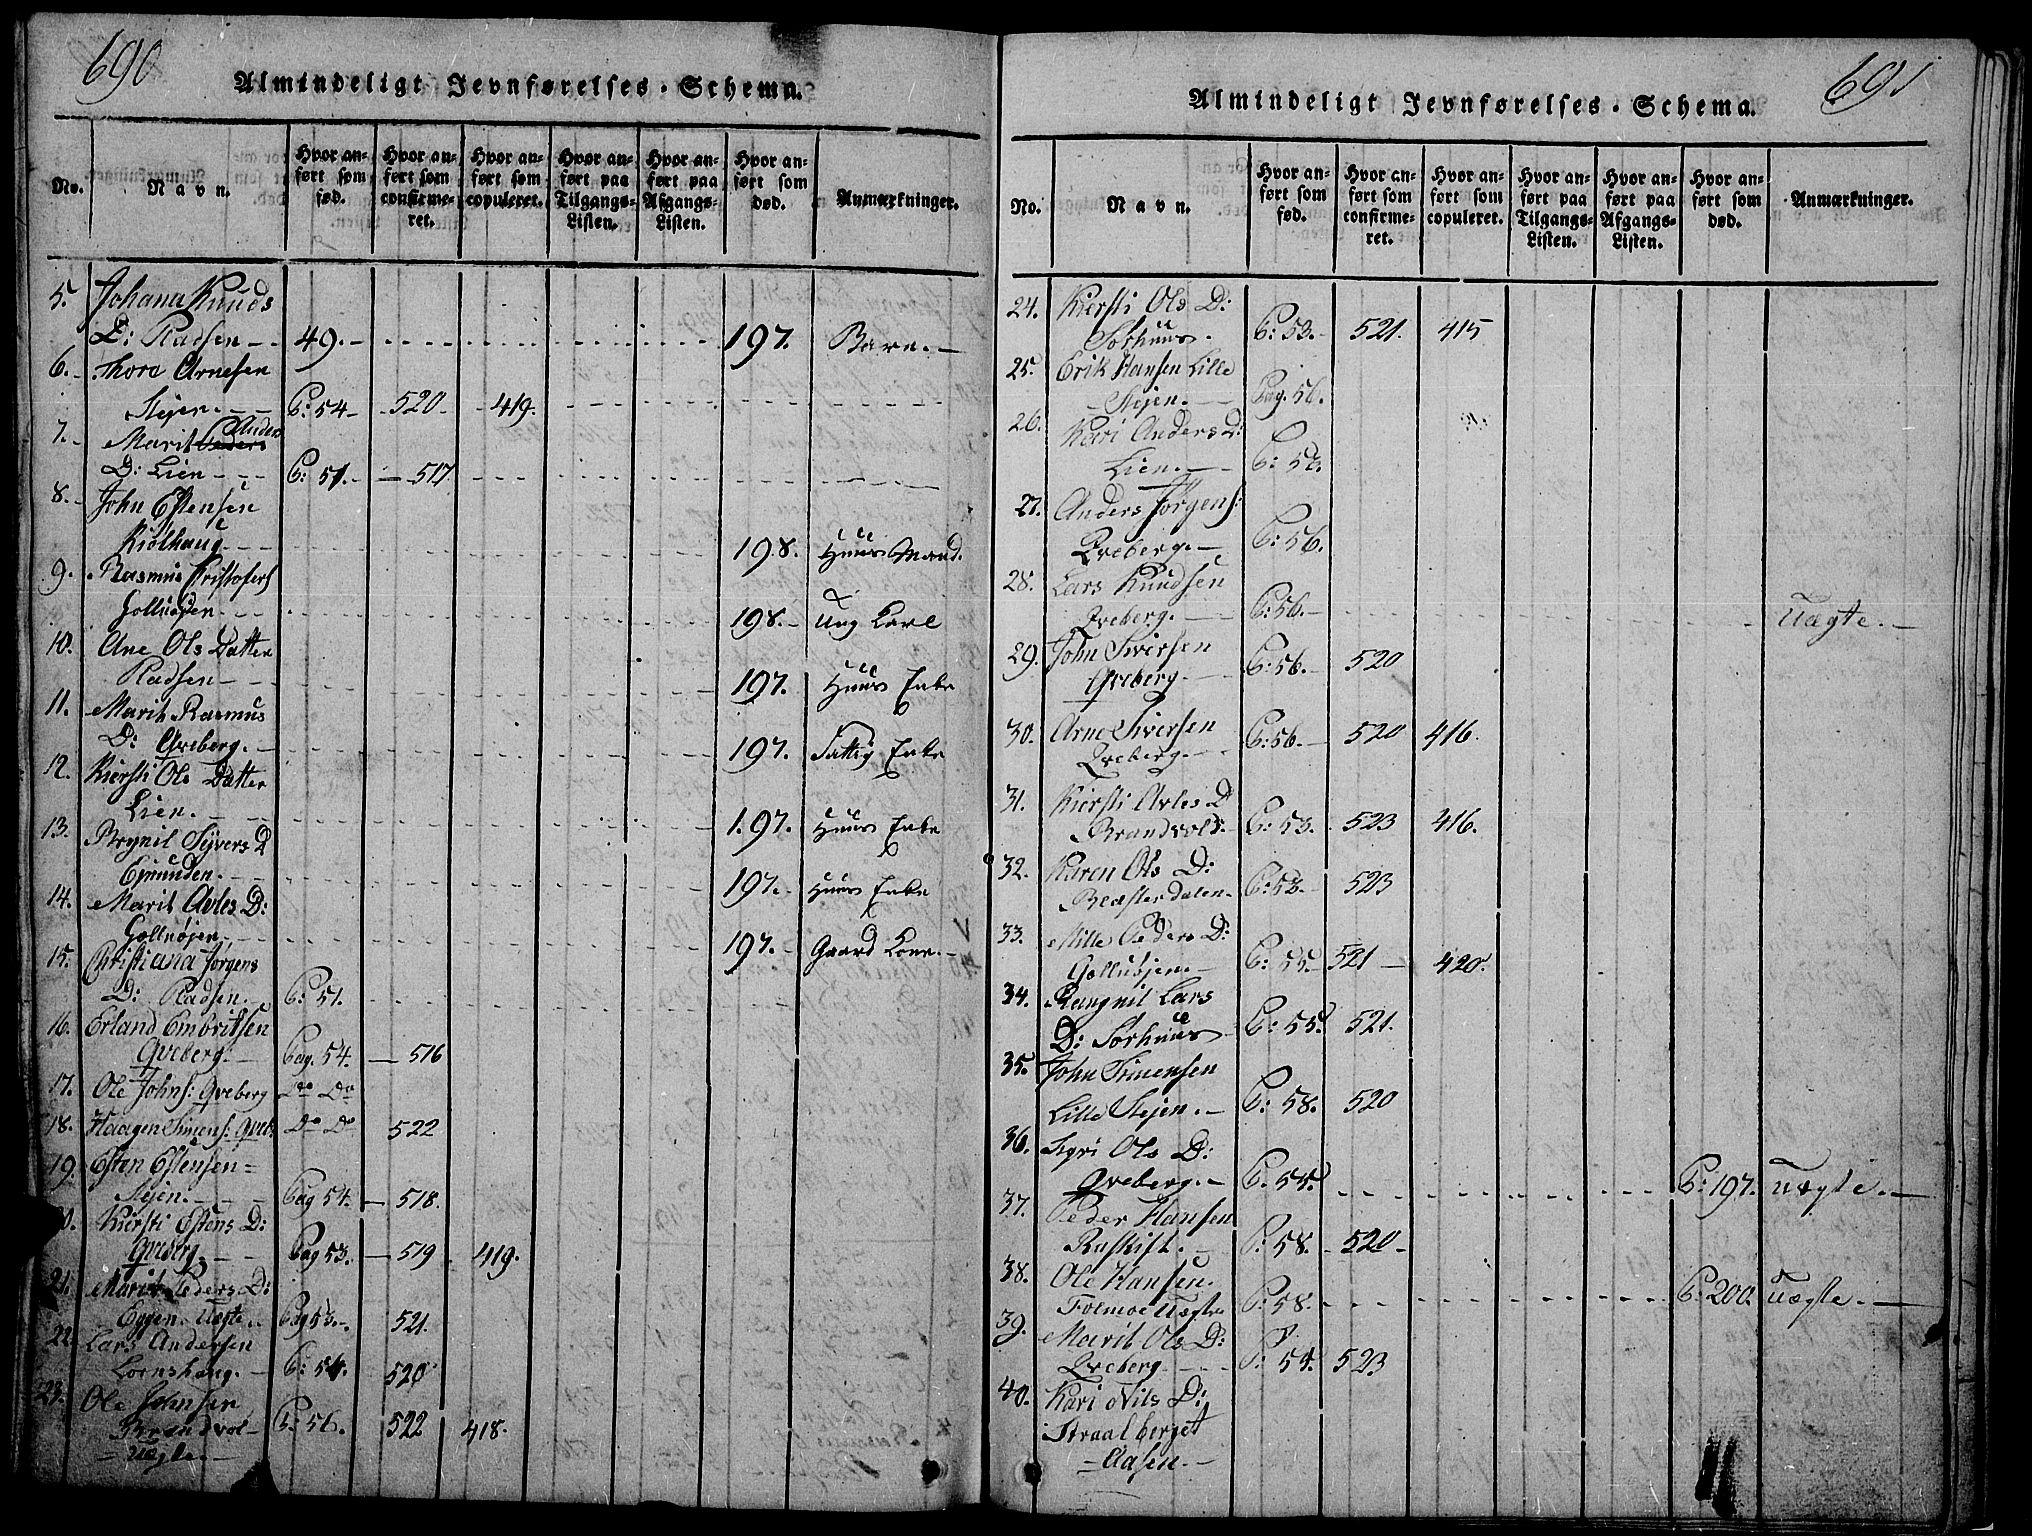 690
Almindeligt Jevnførelses-Schema.
No.
Navn.
Hvor anført som fød.
Hvor anført som confirmeret.
Hvor anført som copuleret.
Hvor anført paa Tilgangs-Listen.
Hvor anført paa Afgangs-Listen.
Hvor anført som død.
Anmærkninger.
5. Johana Knuds
D: Pladsen 49. 197. Barn.
6. Thore Arnesen
Stejen P: 54 520 419.
7. Marit Anders
D: Lien P: 51. 517
8. John Estensen
Kiølhaug 198. Huus Mand.
9. Rasmus Kristofers
198. Ung Karl
10. Ane Ols Datter
Pladsen 197. Huus Enke
11. Marit Rasmus
D: Qveberg. 197. Fattig Enke
12. Kiersti Ols Datter
Lien. 197. Huus Enke
13. Brynil Syvers D
Ejmunden. 197. Huus Enke
14. Marit Avles D:
Gollnøjen. 197. Gaard Kone.
15. Christiana Jørgens
D: Pladsen. P: 51.
16. Erland Embritsen
Qveberg. Pag. 54. 516
17. Ole Johns: Qveberg Do Do
18. Haagen Simens: Qveb. Do Do 522
19. Esten Estensen
Stejen. Pag 54. 518.
20. Kiersti Estens D:
Qveberg. Pag 53. 519 419.
21. Marit Peders D:
Eggen Uægte. Pag 53. 521.
22. Lars Andersen
Lornshaug. P: 54. 520
23. Ole Johnsen
Brandvol P: 56. 522 418.
Uægte.
691
Almindeligt Jevnførelses-Schema.
No.
Navn.
Hvor anført som fød.
Hvor anført som confirmeret.
Hvor anført som copuleret.
Hvor anført paa Tilgangs-Listen.
Hvor anført paa Afgangs-Listen.
Hvor anført som død.
Anmærkninger.
24. Kiersti Ols D:
Sorhuus. P: 53. 521. 415
25. Erik Hansen Lille
Stejen. Pag. 56.
26. Kari Anders D:
Lien. P: 56.
27. Anders Jørgens:
Qveberg. P: 56.
28. Lars Knudsen
Qveberg. P: 56. Uægte.
29. John Siversen
Qveberg. P: 56. 520
30. Arne Siversen
Qveberg. P: 56. 520 416.
31. Kiersti Avles D
Brandvold. P: 53. 523 416.
32. Karen Ols D:
Blæsterdalen. P: 53. 523
33. Mille Peders D:
Gollusjen. P: 55. 521 420.
34. Rangnil Lars
D: Sorhuus P: 55. 521.
35. John Simensen
Lille Stejen. P: 58. 520
36. Sigri Ols D:
Qveberg. P: 54. P: 197. Uægte.
37. Peder Hansen
P: 58. 520
38. Ole Hansen.
Tolmoe Uægte P: 58. P: 200. Uægte.
39. Marit Ols D:
Qveberg P: 54. 523
40. Kari Nils D:
Straalberget
Aasen.